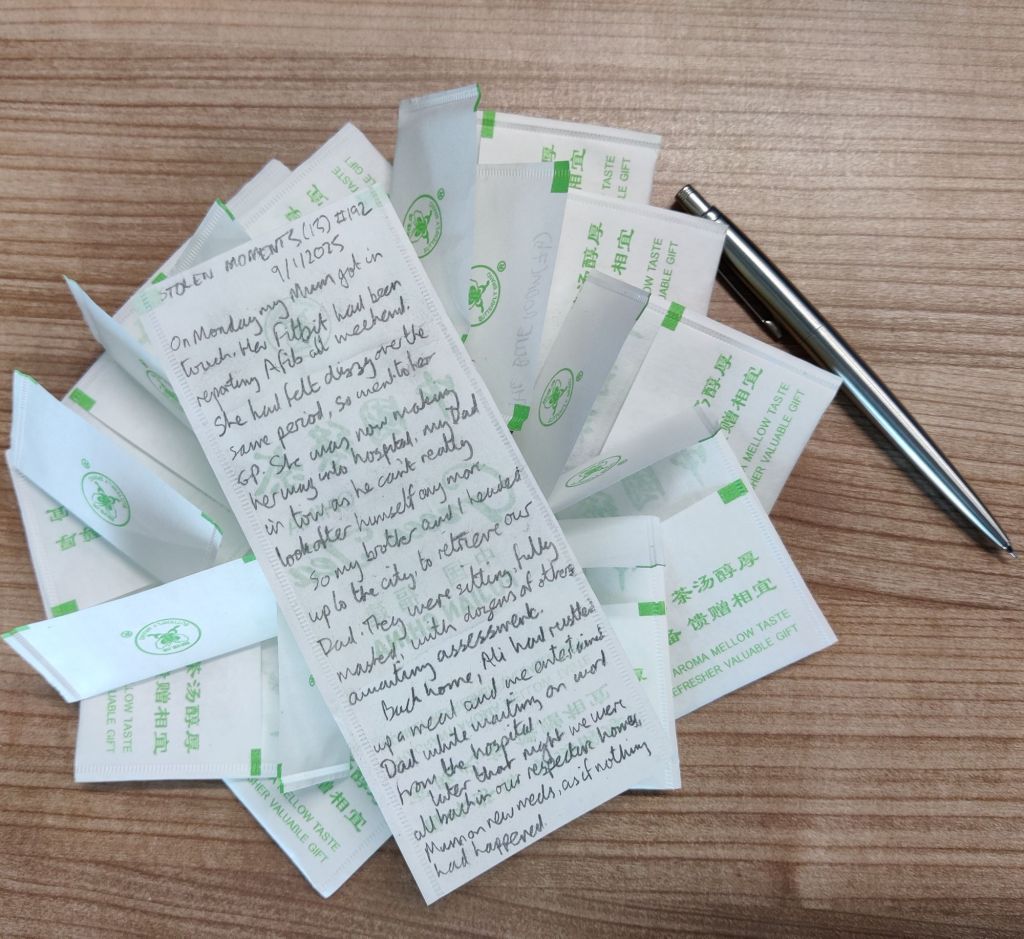 STOLEN MOMENTS (13) #192
9/1/2025
On Monday my Mum got in
touch. Her Fitbit had been
reporting Afib all weekend.
She had felt dizzy over the
same period, so went to her
GP. She was now making
her way into hospital, my Dad
in tow as he can't really
look after himself any more.
So my brother and I headed
up to the city, to retrieve our
Dad. They were sitting, fully
masked, with dozens of others
awaiting assessment.
Back home, Ali had rustled
up a meal and we entertained
Dad while waiting on word
from the hospital.
Later that night we were
all back in our respective homes,
Mum on new meds, as if nothing
had happened.
宜
TASTE
GIFT
相宜
GIFT
®
®
汤醇厚
相宜
LOW TASTE
UABLE GIFT
醇厚
赠相宜
MELLOW TASTE
HER VALUABLE GIFT
®
茶汤醇厚
馈赠相宜
AROMA MELLOW TASTE
REFRESHER VALUABLE GIFT
®
®
茶汤醇厚
赠相宜
LOW TASTE
UABLE GIFT
MELLOW TASTE
SHER VALUABLE GIFT